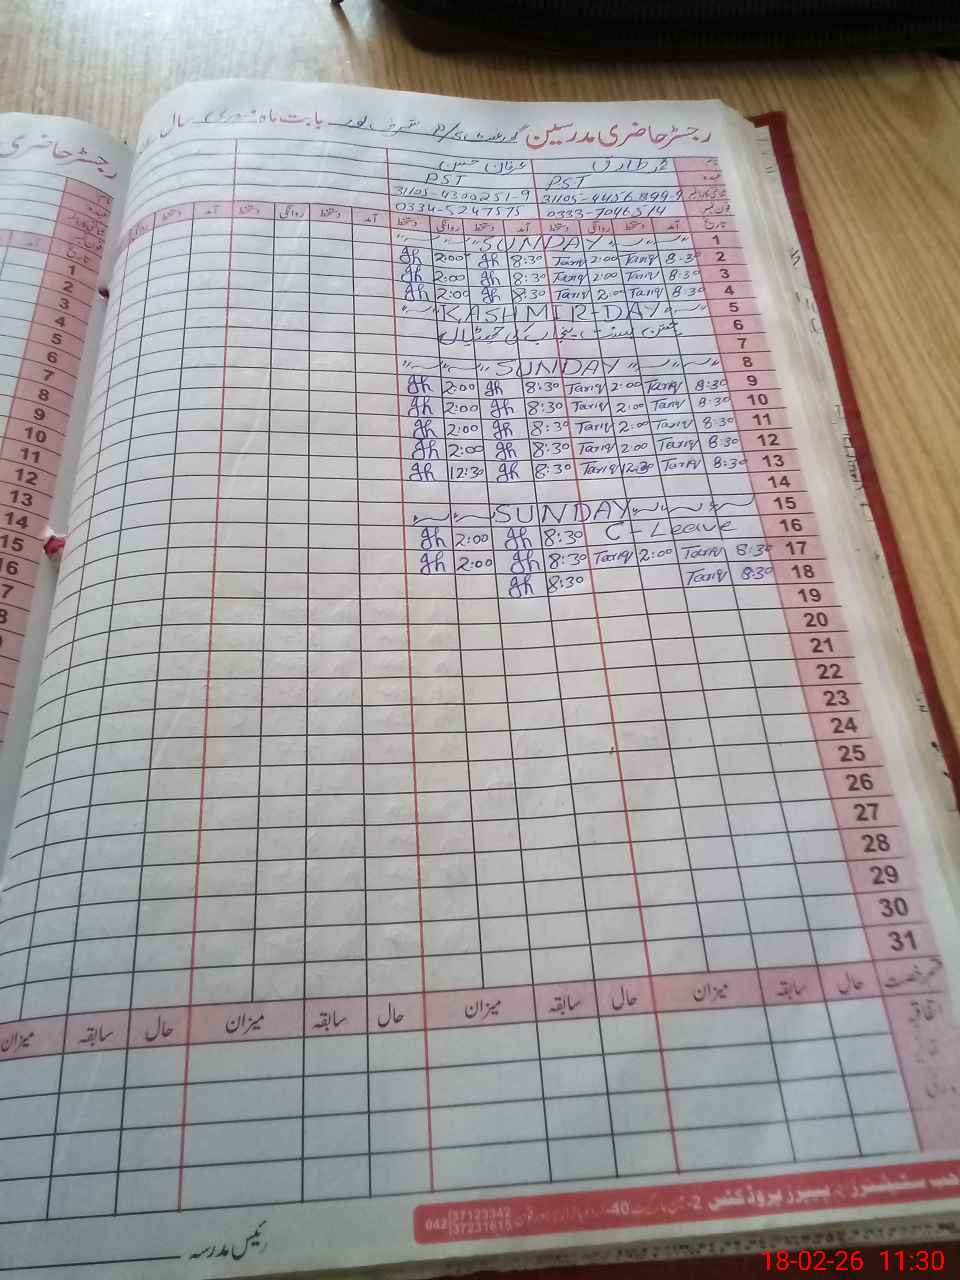 رجسٹر حاضری مدرسین گورنمنٹ بابت ماہ فروری سال
رجسٹر حاضری
محمد طارق عرفان حسن
PST PST
31105-4456899-9 31105-4300251-9
0333-7046514 0334-5247575
تاریخ آمد دستخط روانگی دستخط آمد دستخط روانگی دستخط آمد دستخط روانگی دستخط آمد دستخط روانگی
1 SUNDAY
2 8:30 Tariq 2:00 Tariq 8:30 Jh 2:00 Jh
3 8:30 Tariq 2:00 Tariq 8:30 Jh 2:00 Jh
4 8:30 Tariq 2:00 Tariq 8:30 Jh 2:00 Jh
5 KASHMIR-DAY
6
7
8 SUNDAY
9 8:30 Tariq 2:00 Tariq 8:30 Jh 2:00 Jh
10 8:30 Tariq 2:00 Tariq 8:30 Jh 2:00 Jh
11 8:30 Tariq 2:00 Tariq 8:30 Jh 2:00 Jh
12 8:30 Tariq 2:00 Tariq 8:30 Jh 2:00 Jh
13 8:30 Tariq 12:30 Tariq 8:30 Jh 12:30 Jh
14
15 SUNDAY
16 C-Leave 8:30 Jh 2:00 Jh
17 8:30 Tariq 2:00 Tariq 8:30 Jh 2:00 Jh
18 8:30 Tariq 8:30 Jh
19
20
21
22
23
24
25
26
27
28
29
30
31
حال سابقہ میزان حال سابقہ میزان حال سابقہ میزان حال سابقہ میزان
اتفاقیہ
042 37123342
37231615
رئیس مدرسہ
18-02-26 11:30